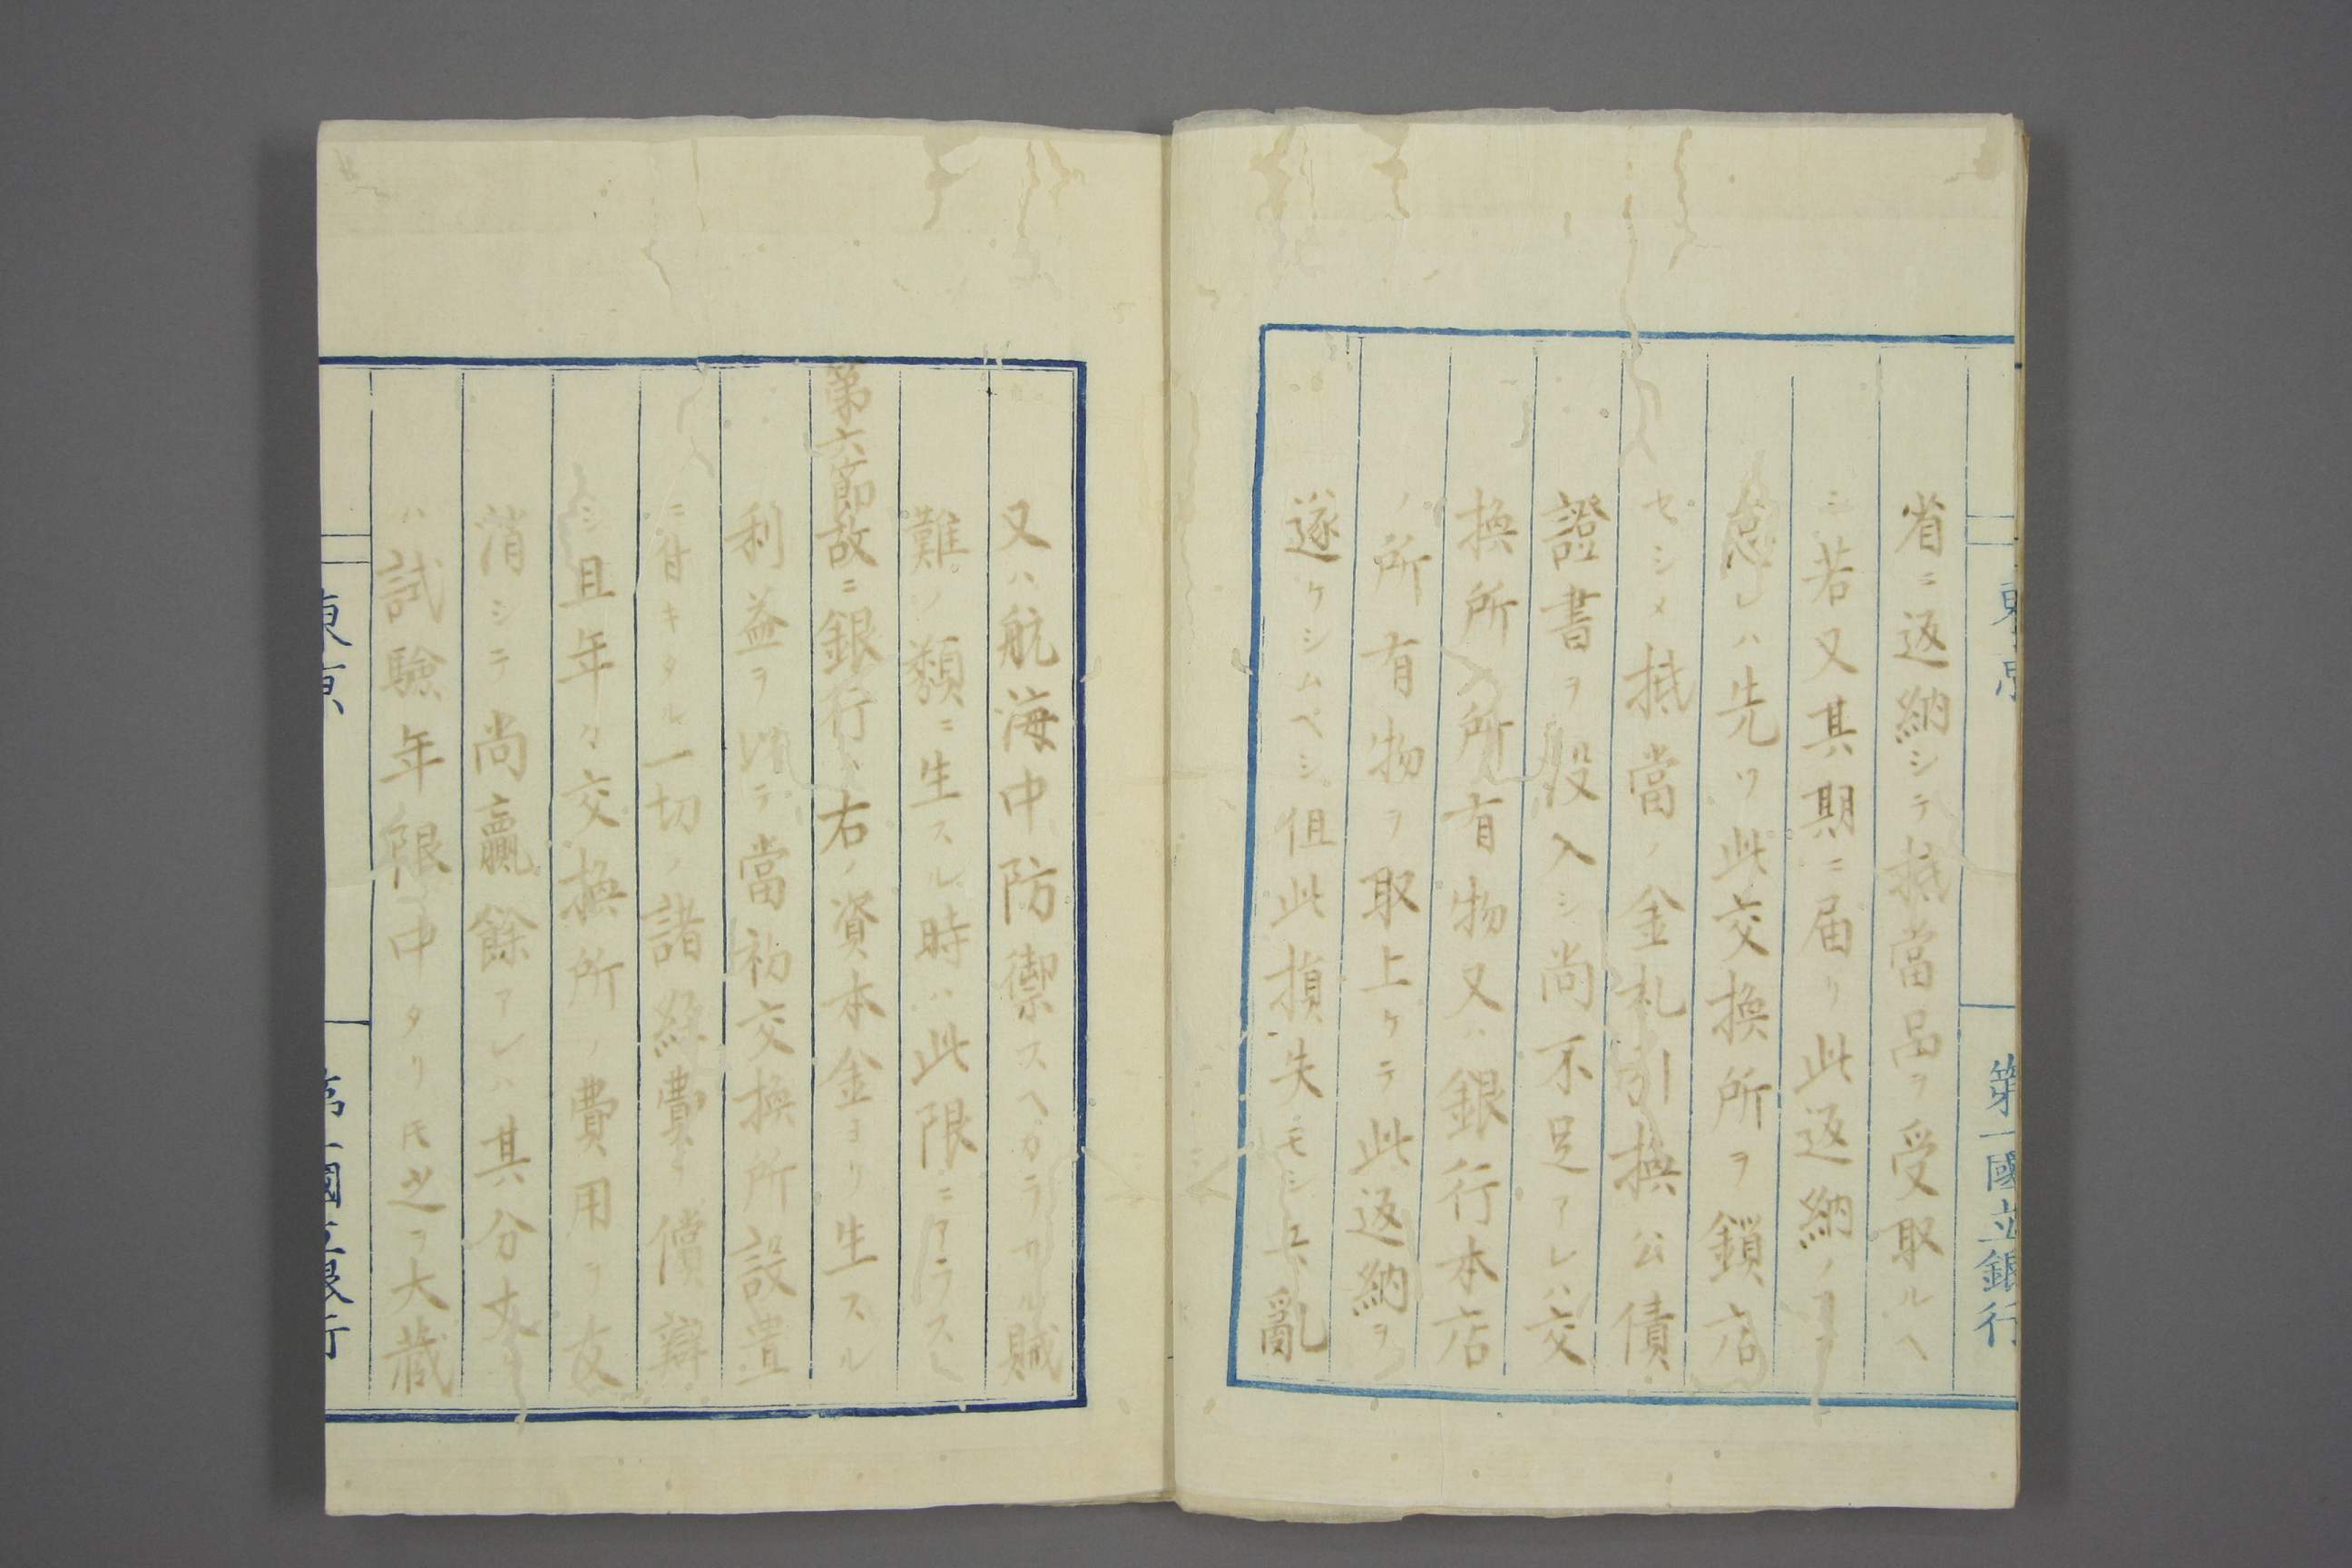 東京
第一國立銀行
省ニ返納シテ抵當品ヲ受取ルヘ
シ若又其期ニ届リ此返納ノ
怠レハ先ツ此交換所ヲ鎖店
セシメ抵當ノ金札引換公債
證書ヲ没入シ尚不足アレハ交
換所所有物又ハ銀行本店
ノ所有物ヲ取上ケテ此返納ヲ
遂ケシムベシ但此損失モシ兵亂
又ハ航海中防禦スヘカラサル賊
難ノ類ニ生スル時ハ此限ニアラス
第六節故ニ銀行ハ右ノ資本金ヨリ生スル
利益ヲ以テ當初交換所設置
ニ付キタル一切ノ諸經費ヲ償辨
シ且年々交換所ノ費用ヲ支
消シテ尚贏餘アレハ其分丈ケ
ハ試驗年限中タリ𪜈之ヲ大藏
東京
第一國立銀行